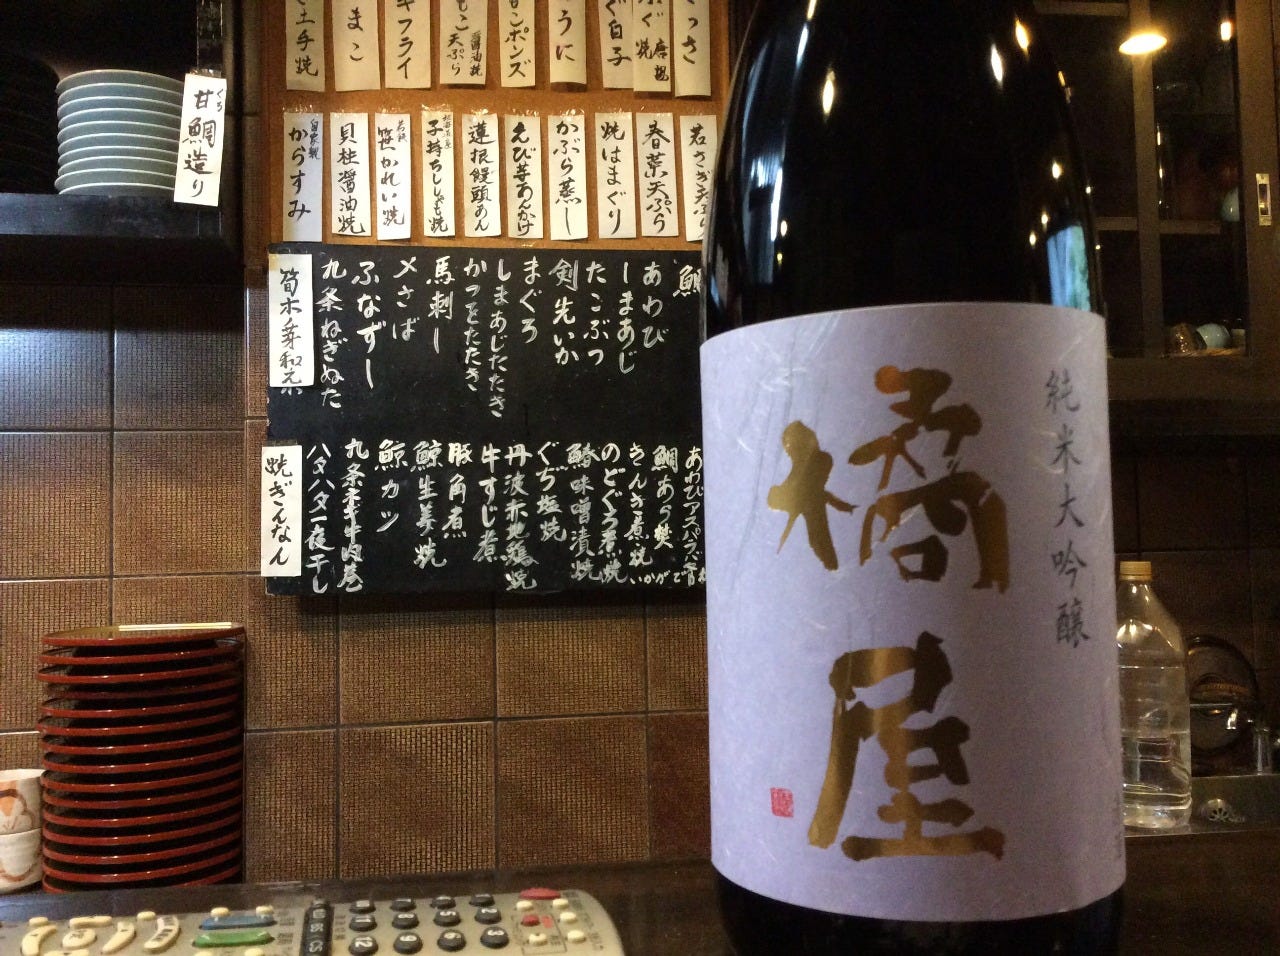 甘鯛造り
ぐぢ
土手焼
まこ
フライ
醤油焼
天ぷら
ポンズ
うに
ぐ白子
ふぐ唐揚
焼
自家製
からすみ
貝柱醤油焼
若狭
笹かれい焼
北海道産
子持ちししゃも焼
蓮根饅頭あん
えび芋あんかけ
かぶら蒸し
焼はまぐり
春菜天ぷら
若さぎ天ぷら
鯛
あわび
しまあじ
たこぶつ
剣先いか
まぐろ
しまあじたたき
かつをたたき
馬刺し
〆さば
ふなずし
九条ねぎぬた
筍木の芽和え
あわびアスパラバター
鯛あら焚
きんき煮焼
のどぐろ煮焼
鰆味噌漬焼
ぐぢ塩焼
丹波赤地鶏焼
牛すじ煮
豚角煮
鯨生姜焼
鯨カツ
九条ネギ牛肉巻
ハタハタ一夜干し
焼ぎんなん
純米大吟醸
橘屋